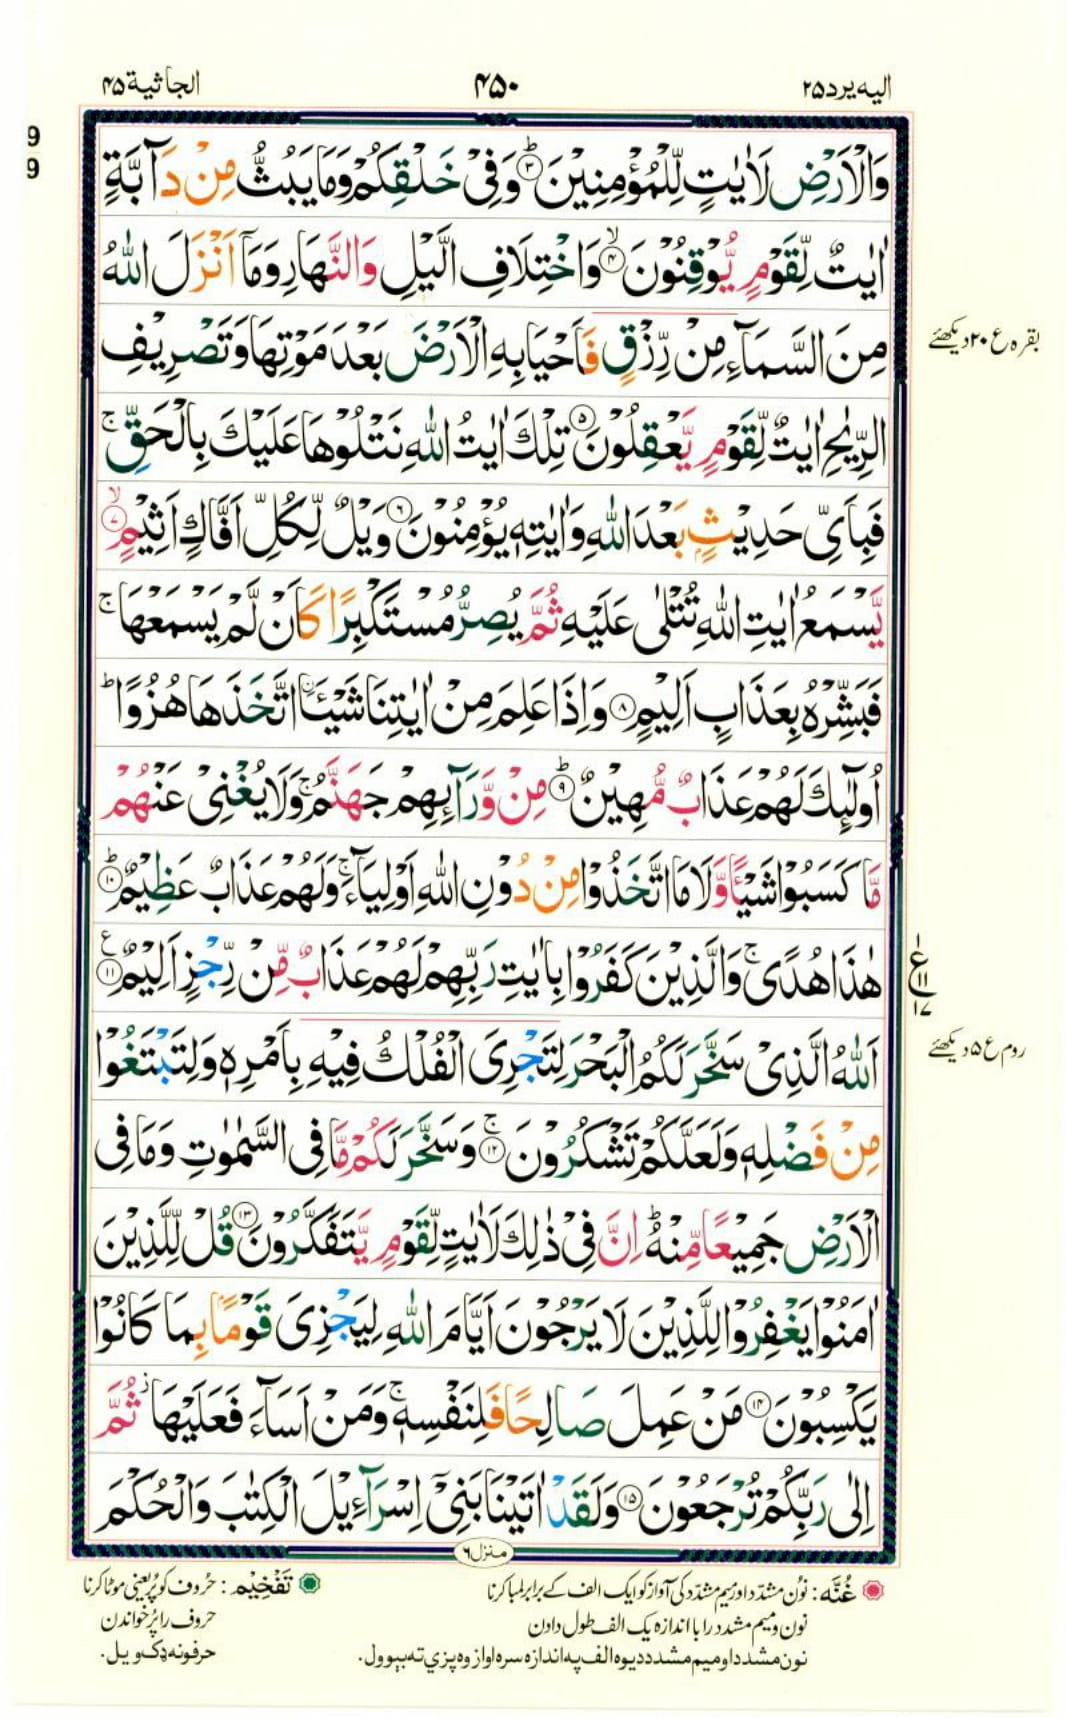 الیه یرد ۲۵
۴۵۰
الجاثیة ۴۵
9
9
وَالْاَرْضِ لَاٰیٰتٍ لِّلْمُؤْمِنِیْنَ ؕ﴿۳﴾ وَفِیْ خَلْقِكُمْ وَمَا یَبُثُّ مِنْ دَآبَّةٍ
اٰیٰتٌ لِّقَوْمٍ یُّوْقِنُوْنَ ۙ﴿۴﴾ وَاخْتِلَافِ الَّیْلِ وَالنَّهَارِ وَمَاۤ اَنْزَلَ اللّٰهُ
مِنَ السَّمَآءِ مِنْ رِّزْقٍ فَاَحْیَا بِهِ الْاَرْضَ بَعْدَ مَوْتِهَا وَتَصْرِیْفِ
بقرہ ع ۲۰ دیکھئے
الرِّیٰحِ اٰیٰتٌ لِّقَوْمٍ یَّعْقِلُوْنَ ﴿۵﴾ تِلْكَ اٰیٰتُ اللّٰهِ نَتْلُوْهَا عَلَیْكَ بِالْحَقِّ ۚ
فَبِاَیِّ حَدِیْثٍۭ بَعْدَ اللّٰهِ وَاٰیٰتِهٖ یُؤْمِنُوْنَ ﴿۶﴾ وَیْلٌ لِّكُلِّ اَفَّاكٍ اَثِیْمٍ ۙ﴿۷﴾
یَّسْمَعُ اٰیٰتِ اللّٰهِ تُتْلٰی عَلَیْهِ ثُمَّ یُصِرُّ مُسْتَكْبِرًا كَاَنْ لَّمْ یَسْمَعْهَا ۚ
فَبَشِّرْهُ بِعَذَابٍ اَلِیْمٍ ﴿۸﴾ وَاِذَا عَلِمَ مِنْ اٰیٰتِنَا شَیْـَٔا ۨاتَّخَذَهَا هُزُوًا ؕ
اُولٰٓئِكَ لَهُمْ عَذَابٌ مُّهِیْنٌ ؕ﴿۹﴾ مِنْ وَّرَآئِهِمْ جَهَنَّمُ ۚ وَلَا یُغْنِیْ عَنْهُمْ
مَّا كَسَبُوْا شَیْـًٔا وَّلَا مَا اتَّخَذُوْا مِنْ دُوْنِ اللّٰهِ اَوْلِیَآءَ ۚ وَلَهُمْ عَذَابٌ عَظِیْمٌ ؕ﴿۱۰﴾
هٰذَا هُدًی ۚ وَالَّذِیْنَ كَفَرُوْا بِاٰیٰتِ رَبِّهِمْ لَهُمْ عَذَابٌ مِّنْ رِّجْزٍ اَلِیْمٌ ﴿۱۱﴾ع
ع
۱۱
۱۷
اَللّٰهُ الَّذِیْ سَخَّرَ لَكُمُ الْبَحْرَ لِتَجْرِیَ الْفُلْكُ فِیْهِ بِاَمْرِهٖ وَلِتَبْتَغُوْا
روم ع ۵ دیکھئے
مِنْ فَضْلِهٖ وَلَعَلَّكُمْ تَشْكُرُوْنَ ۚ﴿۱۲﴾ وَسَخَّرَ لَكُمْ مَّا فِی السَّمٰوٰتِ وَمَا فِی
الْاَرْضِ جَمِیْعًا مِّنْهُ ؕ اِنَّ فِیْ ذٰلِكَ لَاٰیٰتٍ لِّقَوْمٍ یَّتَفَكَّرُوْنَ ﴿۱۳﴾ قُلْ لِّلَّذِیْنَ
اٰمَنُوْا یَغْفِرُوْا لِلَّذِیْنَ لَا یَرْجُوْنَ اَیَّامَ اللّٰهِ لِیَجْزِیَ قَوْمًۢا بِمَا كَانُوْا
یَكْسِبُوْنَ ﴿۱۴﴾ مَنْ عَمِلَ صَالِحًا فَلِنَفْسِهٖ ۚ وَمَنْ اَسَآءَ فَعَلَیْهَا ؗ ثُمَّ
اِلٰی رَبِّكُمْ تُرْجَعُوْنَ ﴿۱۵﴾ وَلَقَدْ اٰتَیْنَا بَنِیْۤ اِسْرَآءِیْلَ الْكِتٰبَ وَالْحُكْمَ
منزل ۶
غُنَّہ: نون مشدد اور میم مشدد کی آواز کو ایک الف کے برابر لمبا کرنا
نون و میم مشدد را با اندازہ یک الف طول دادن
نون مشدد او میم مشدد دیوه الف په اندازه سره اواز وه پزي ته بېوول.
تَفْخِیْم: حُروف کو پُر یعنی موٹا کرنا
حروف را پُر خواندن
حرفونه ډک ویل.